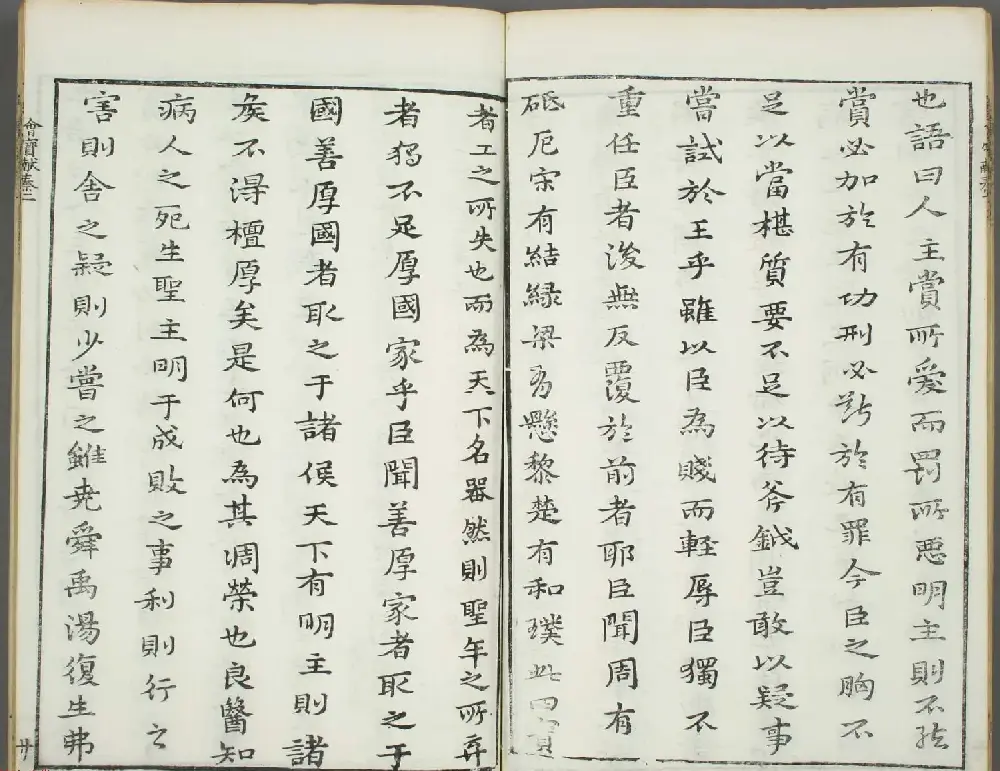 也語曰人主賞所愛而罰所惡明主則不然
賞必加於有功刑必斷於有罪今臣之胸不
足以當椹質要不足以待斧鉞豈敢以疑事
嘗試於王乎雖以臣為賤而輕辱臣獨不
重任臣者後無反覆於前者耶臣聞周有
砥厄宋有結緑梁有懸黎楚有和璞此四寳
者工之所失也而為天下名器然則聖年之所弃
者獨不足厚國家乎臣聞善厚家者取之于
國善厚國者取之于諸侯天下有明主則諸
矦不淂檀厚矣是何也為其凋榮也良醫知
病人之死生聖主明于成敗之事利則行之
害則舍之疑則少嘗之雖尭舜禹湯復生弗
會寳献卷二
廿